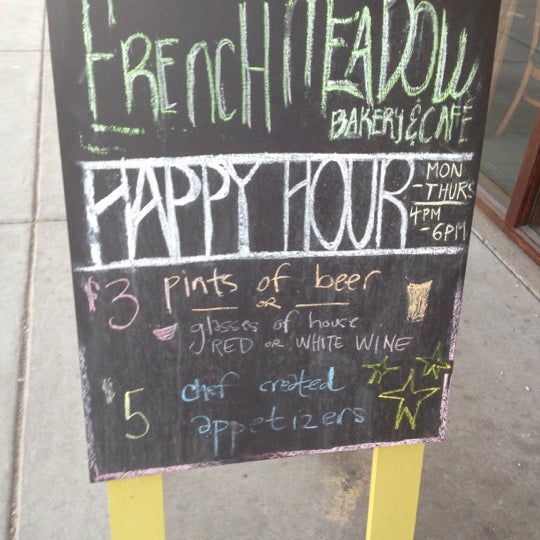 FRENCH MEADOW
BAKERY & CAFÉ
HAPPY HOUR
MON
-THURS
4PM
-6PM
$3 pints of beer
OR
glasses of house
RED OR WHITE WINE
$5 chef created
appetizers